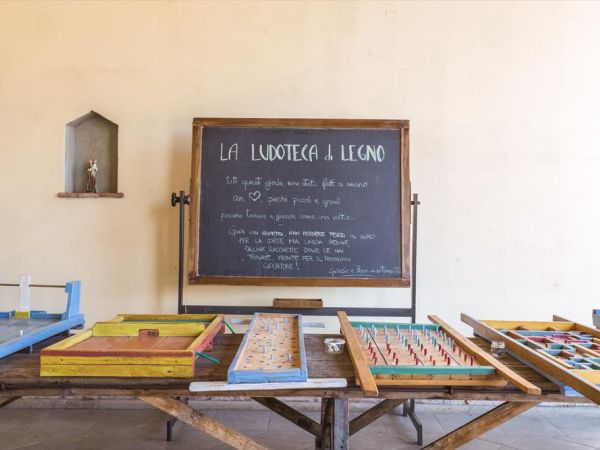 LA LUDOTECA di LEGNO
tutti questi giochi sono stati fatti a mano
con ♡, perché piccoli e grandi
possano tornare a giocare come una volta...
GIOCA CON RISPETTO, NON PERDERE PEZZI IN GIRO
PER LA CORTE MA LASCIA PEDINE,
PALLINE RACCHETTE DOVE LE HAI
TROVATE, PRONTE PER IL PROSSIMO
GIOCATORE!
Grazie e Buon divertimento